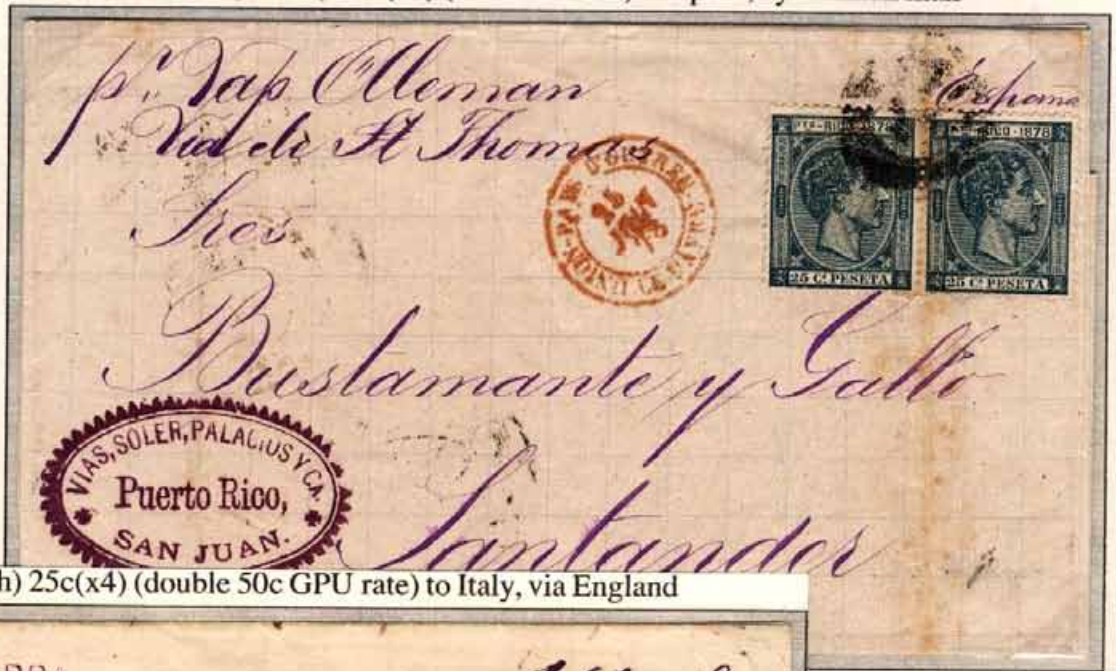 pr. Vap Alleman
Via de St Thomas
España
Sres
Bustamante y Gallo
Santander
PTO-RICO-1878
25 Cs PESETA
PTO-RICO-1878
25 Cs PESETA
VIAS, SOLER, PALACIOS Y CA.
Puerto Rico,
SAN JUAN.
h) 25c(x4) (double 50c GPU rate) to Italy, via England